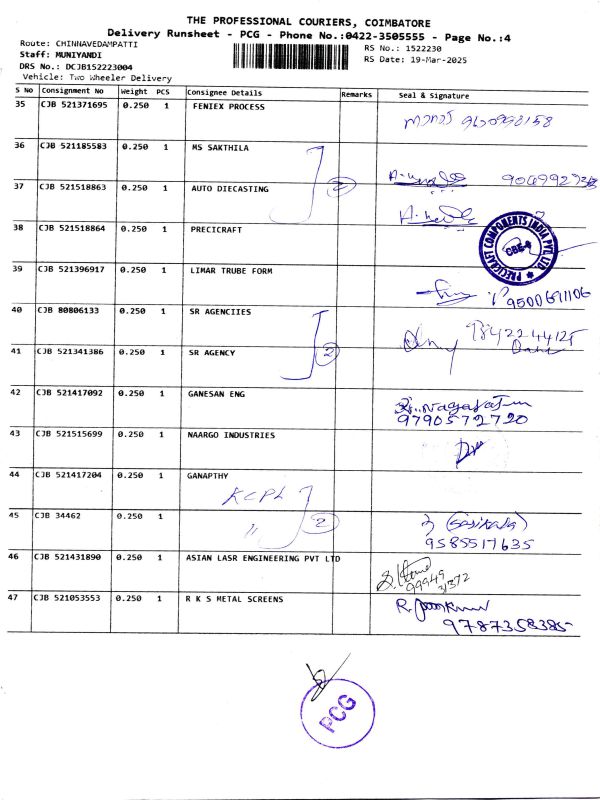 THE PROFESSIONAL COURIERS, COIMBATORE
Delivery Runsheet - PCG - Phone No.:0422-3505555 - Page No.:4
Route: CHINNAVEDAMPATTI
Staff: MUNIYANDI
DRS No.: DCJB152223004
Vehicle: Two Wheeler Delivery
RS No.: 1522230
RS Date: 19-Mar-2025
S No Consignment No Weight PCS Consignee Details Remarks Seal & Signature
35 CJB 521371695 0.250 1 FENIEX PROCESS
36 CJB 521185583 0.250 1 MS SAKTHILA
37 CJB 521518863 0.250 1 AUTO DIECASTING 2
38 CJB 521518864 0.250 1 PRECICRAFT
PRECICRAFT COMPONENTS INDIA PVT. LTD. CBE-6
39 CJB 521396917 0.250 1 LIMAR TRUBE FORM 9500691106
40 CJB 80806133 0.250 1 SR AGENCIIES 9842244125
41 CJB 521341386 0.250 1 SR AGENCY 2
42 CJB 521417092 0.250 1 GANESAN ENG
9790572720
43 CJB 521515699 0.250 1 NAARGO INDUSTRIES
44 CJB 521417204 0.250 1 GANAPTHY
KCPL
45 CJB 34462 0.250 1 " 2 (Sasikala)
9585517635
46 CJB 521431890 0.250 1 ASIAN LASR ENGINEERING PVT LTD
99949
31372
47 CJB 521053553 0.250 1 R K S METAL SCREENS
9787358385
PCG